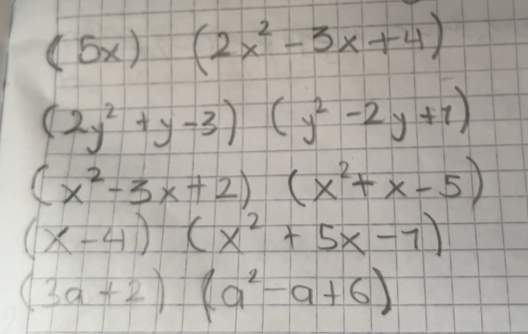 (5x) (2x² - 3x + 4)
(2y² + y - 3) (y² - 2y + 1)
(x² - 3x + 2) (x² + x - 5)
(x - 4) (x² + 5x - 1)
(3a + 2) (a² - a + 6)